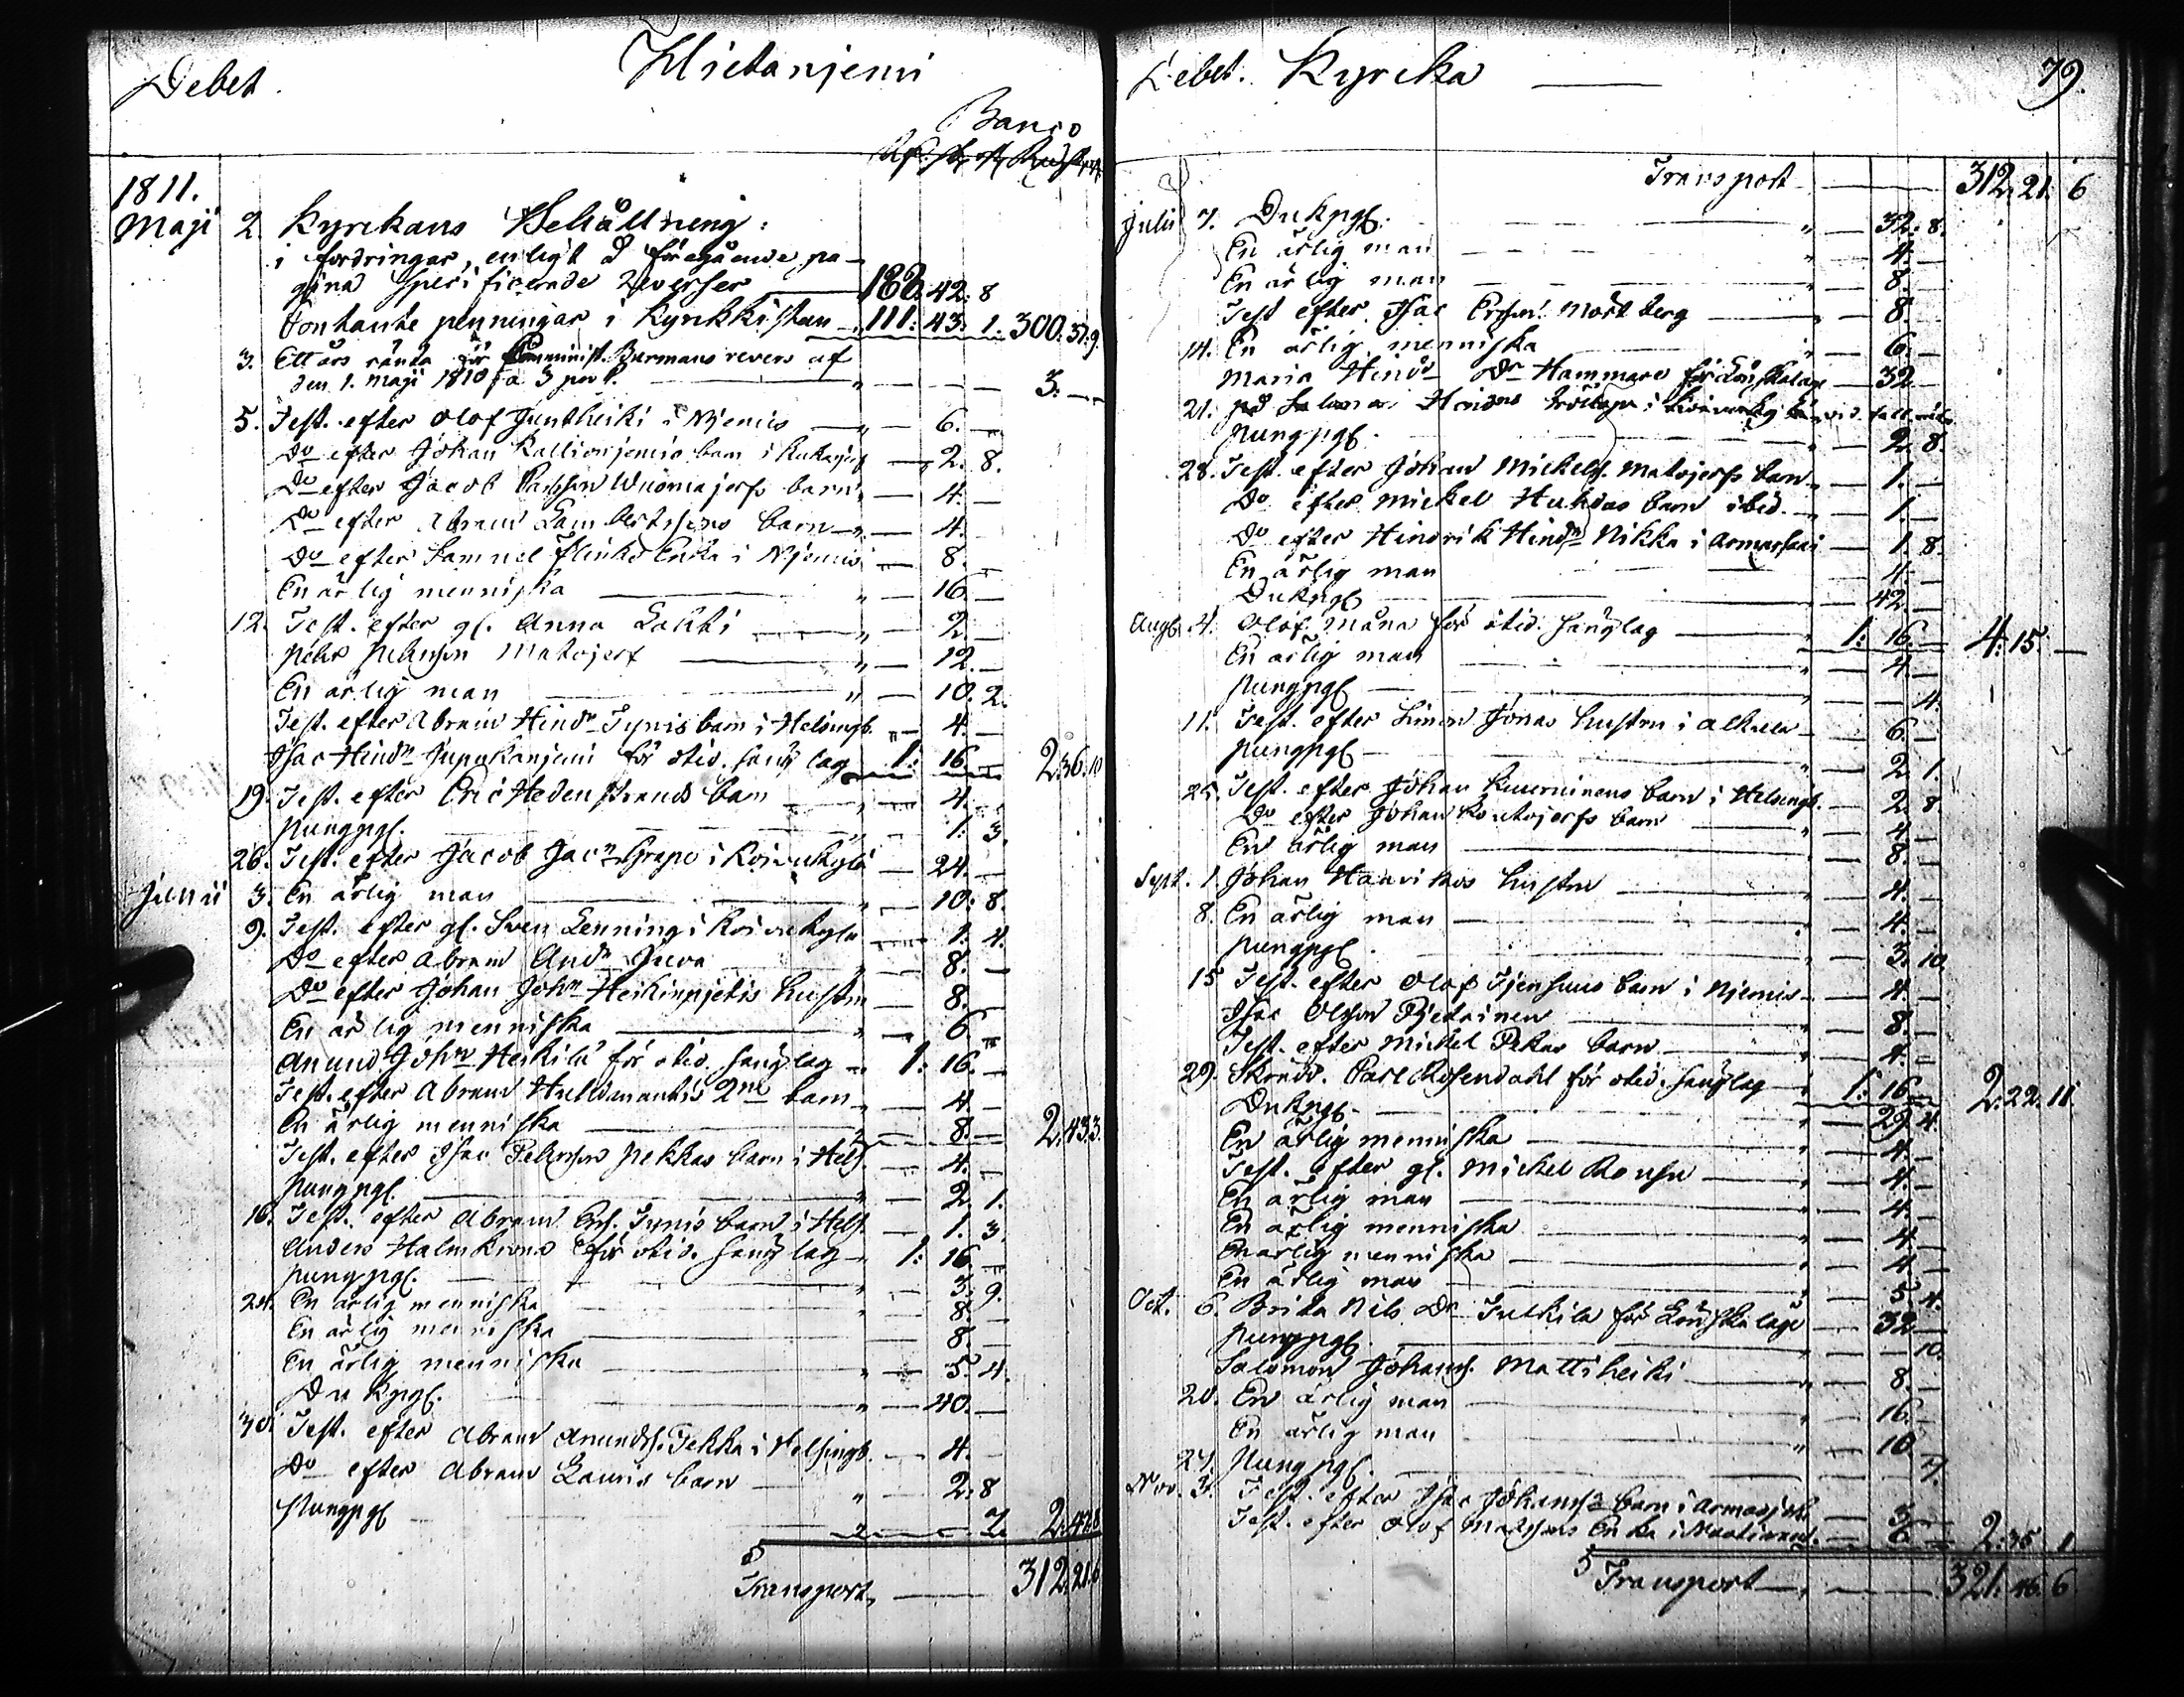 Debet. Hietaniemi
Banco
1811.
Maji 2. Kyrkans Behållning:
i fordringar, enligt å föregående pa-
gina specificerade Reverser 188: 42: 8
Contante penningar i Kyrkkistan 111: 43: 1. 300. 37. 9.
3. Ett års ränta för Comminist. Burmans revers af
den 1. Maji 1810 3. —
5. Test. efter Olof Juntheiki i Njemis — 6. —
Do efter Johan Kallionjemis barn i — 2. 8.
Do efter Jacob Wuomajerfs barn — 4. —
Do efter Abram Lambertssons barn — 4. —
Do efter Samuel Flinks Enka i Njemis — 8. —
En ärlig menniska — 16. —
12. Test. efter gl. Anna Lahti — 2. —
Pehr Pehrsson Matojerf — 12. —
En ärlig man — 10. 2.
Test. efter Abram Hindn Tynis barn i Helsingb. — 4. —
Isac Hindn för otid. sänglag 1: 16. — 2: 36. 10
19. Test. efter Eric Hedenstrands barn — 4. —
pungpgl. — 1. 3.
26. Test. efter Jacob Jacn Grape i Koivukylä — 24. —
Junii 3. En ärlig man — 10: 8.
9. Test. efter gl. Sven Lenning i Koivukylä — 1. 4.
Do efter Abram Andn — 8. —
Do efter Johan John Heikinpjetis hustru — 8. —
En ärlig menniska — 6. —
Anund John Heikilä för otid. sänglag 1: 16. —
Test. efter Abram 2ne barn — 4. —
En ärlig menniska — 8. — 2. 43. 3.
Test. efter Isac Pehrsson Pekkas barn i Hels. — 4. —
Pungpgl. — 2. 1.
16. Test. efter Abram Tynis barn i Hels. — 1. 3.
Anders Halmkrona för otid. sänglag 1: 16. —
pungpgl. — 3. 9.
24. En ärlig menniska — 8. —
En ärlig menniska — 8. —
En ärlig menniska — 5. 4.
Dukpgl. — 40. —
30. Test. efter Abram Anunds. Tekka i Helsingb. — 4. —
Do efter Abram Lauris barn — 2: 8
Pungpgl — 7. 2: 47. 8
Transport, 312. 21. 6
Debet. Kyrcka — 79.
Transport 312. 21. 6
Julii 7. Dukpgl. — 32. 8.
En ärlig man — 4. —
En ärlig man — 8. —
Test efter Isac Ersson Mört berg — 8. —
14. En ärlig menniska — 6. —
Maria Hindr Dr Hammare för Lönskalage — 32
21. på Salomon
pungpgl. — 2. 8.
28. Test. efter Johan Mickels. Matojerfs barn — 1. —
Do efter Mickel Huhtas barn ibid. — 1. —
Do efter Hindrik Hindn Nikka i Armassaari — 1. 8.
En ärlig man — 4. —
Dukpgl — 42. —
Aug. 4. Olof Måna för otid. sänglag 1: 16. — 4: 15. —
En ärlig man — 4. —
pungpgl — 4.
11. Test. efter Simon Jonas hustru i Alkula — 6. —
pungpgl — 2. 1.
25. Test. efter Johan Kuurninens barn i Helsingb. — 2. 8.
Do efter Johan barn — 4. —
En ärlig man — 8. —
Sept. 1. Johan Haavikos hustru — 4. —
8. En ärlig man — 4. —
pungpgl. — 3. 10.
15 Test. efter Olof barn i Njemis — 4. —
Isac Olsson Pjetainen — 8. —
Test. efter Michel Pekas barn — 4. —
29. Carl Rosendahl för otid. sänglag 1: 16. — 2. 22. 11
Dukpgl. — 29. 4.
En ärlig menniska — 4. —
Test. efter gl. Mickel — 4. —
En ärlig man — 4. —
En ärlig menniska — 4. —
En ärlig menniska — 4. —
En ärlig man — 5. 4.
Oct. 6. Brita Nils Dr för Lönskalage — 32 —
pungpgl. — 10.
Salomon Johans. Mattiheiki — 8. —
20. En ärlig man — 16. —
En ärlig man — 10
27. Pungpgl. — 7.
Nov. 3. Test. efter Isac Johans barn i Armasj — 3. —
Test. efter Olof Matssons Enka i — 6 — 2: 35. 1
Transport 321. 46. 6